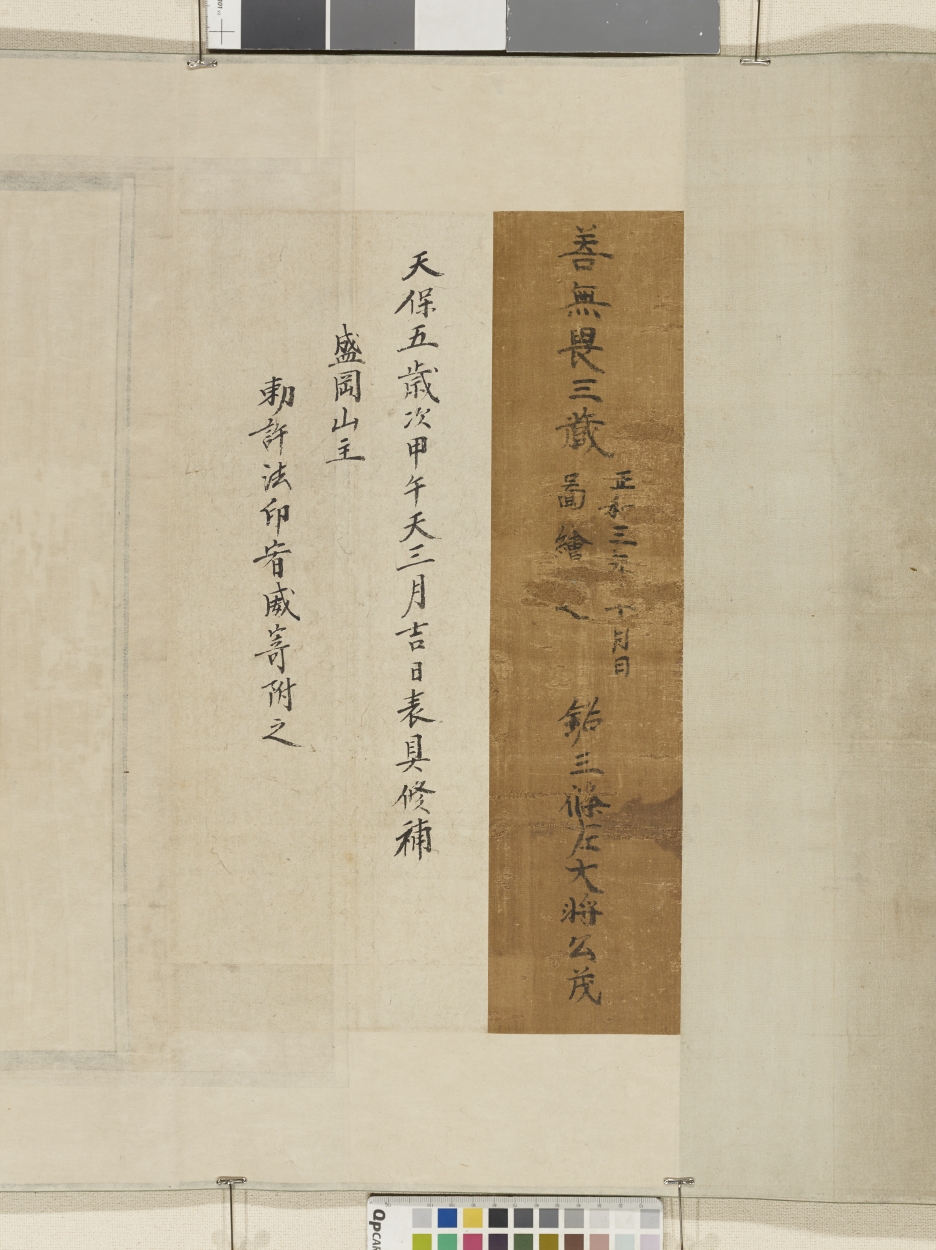 正和三年 十月日
善無畏三蔵 啚繪之 銘三條左大将公茂
天保五歳次甲午天三月吉日表具修補
盛岡山主
勅許法印宥威寄附之
QPCARD